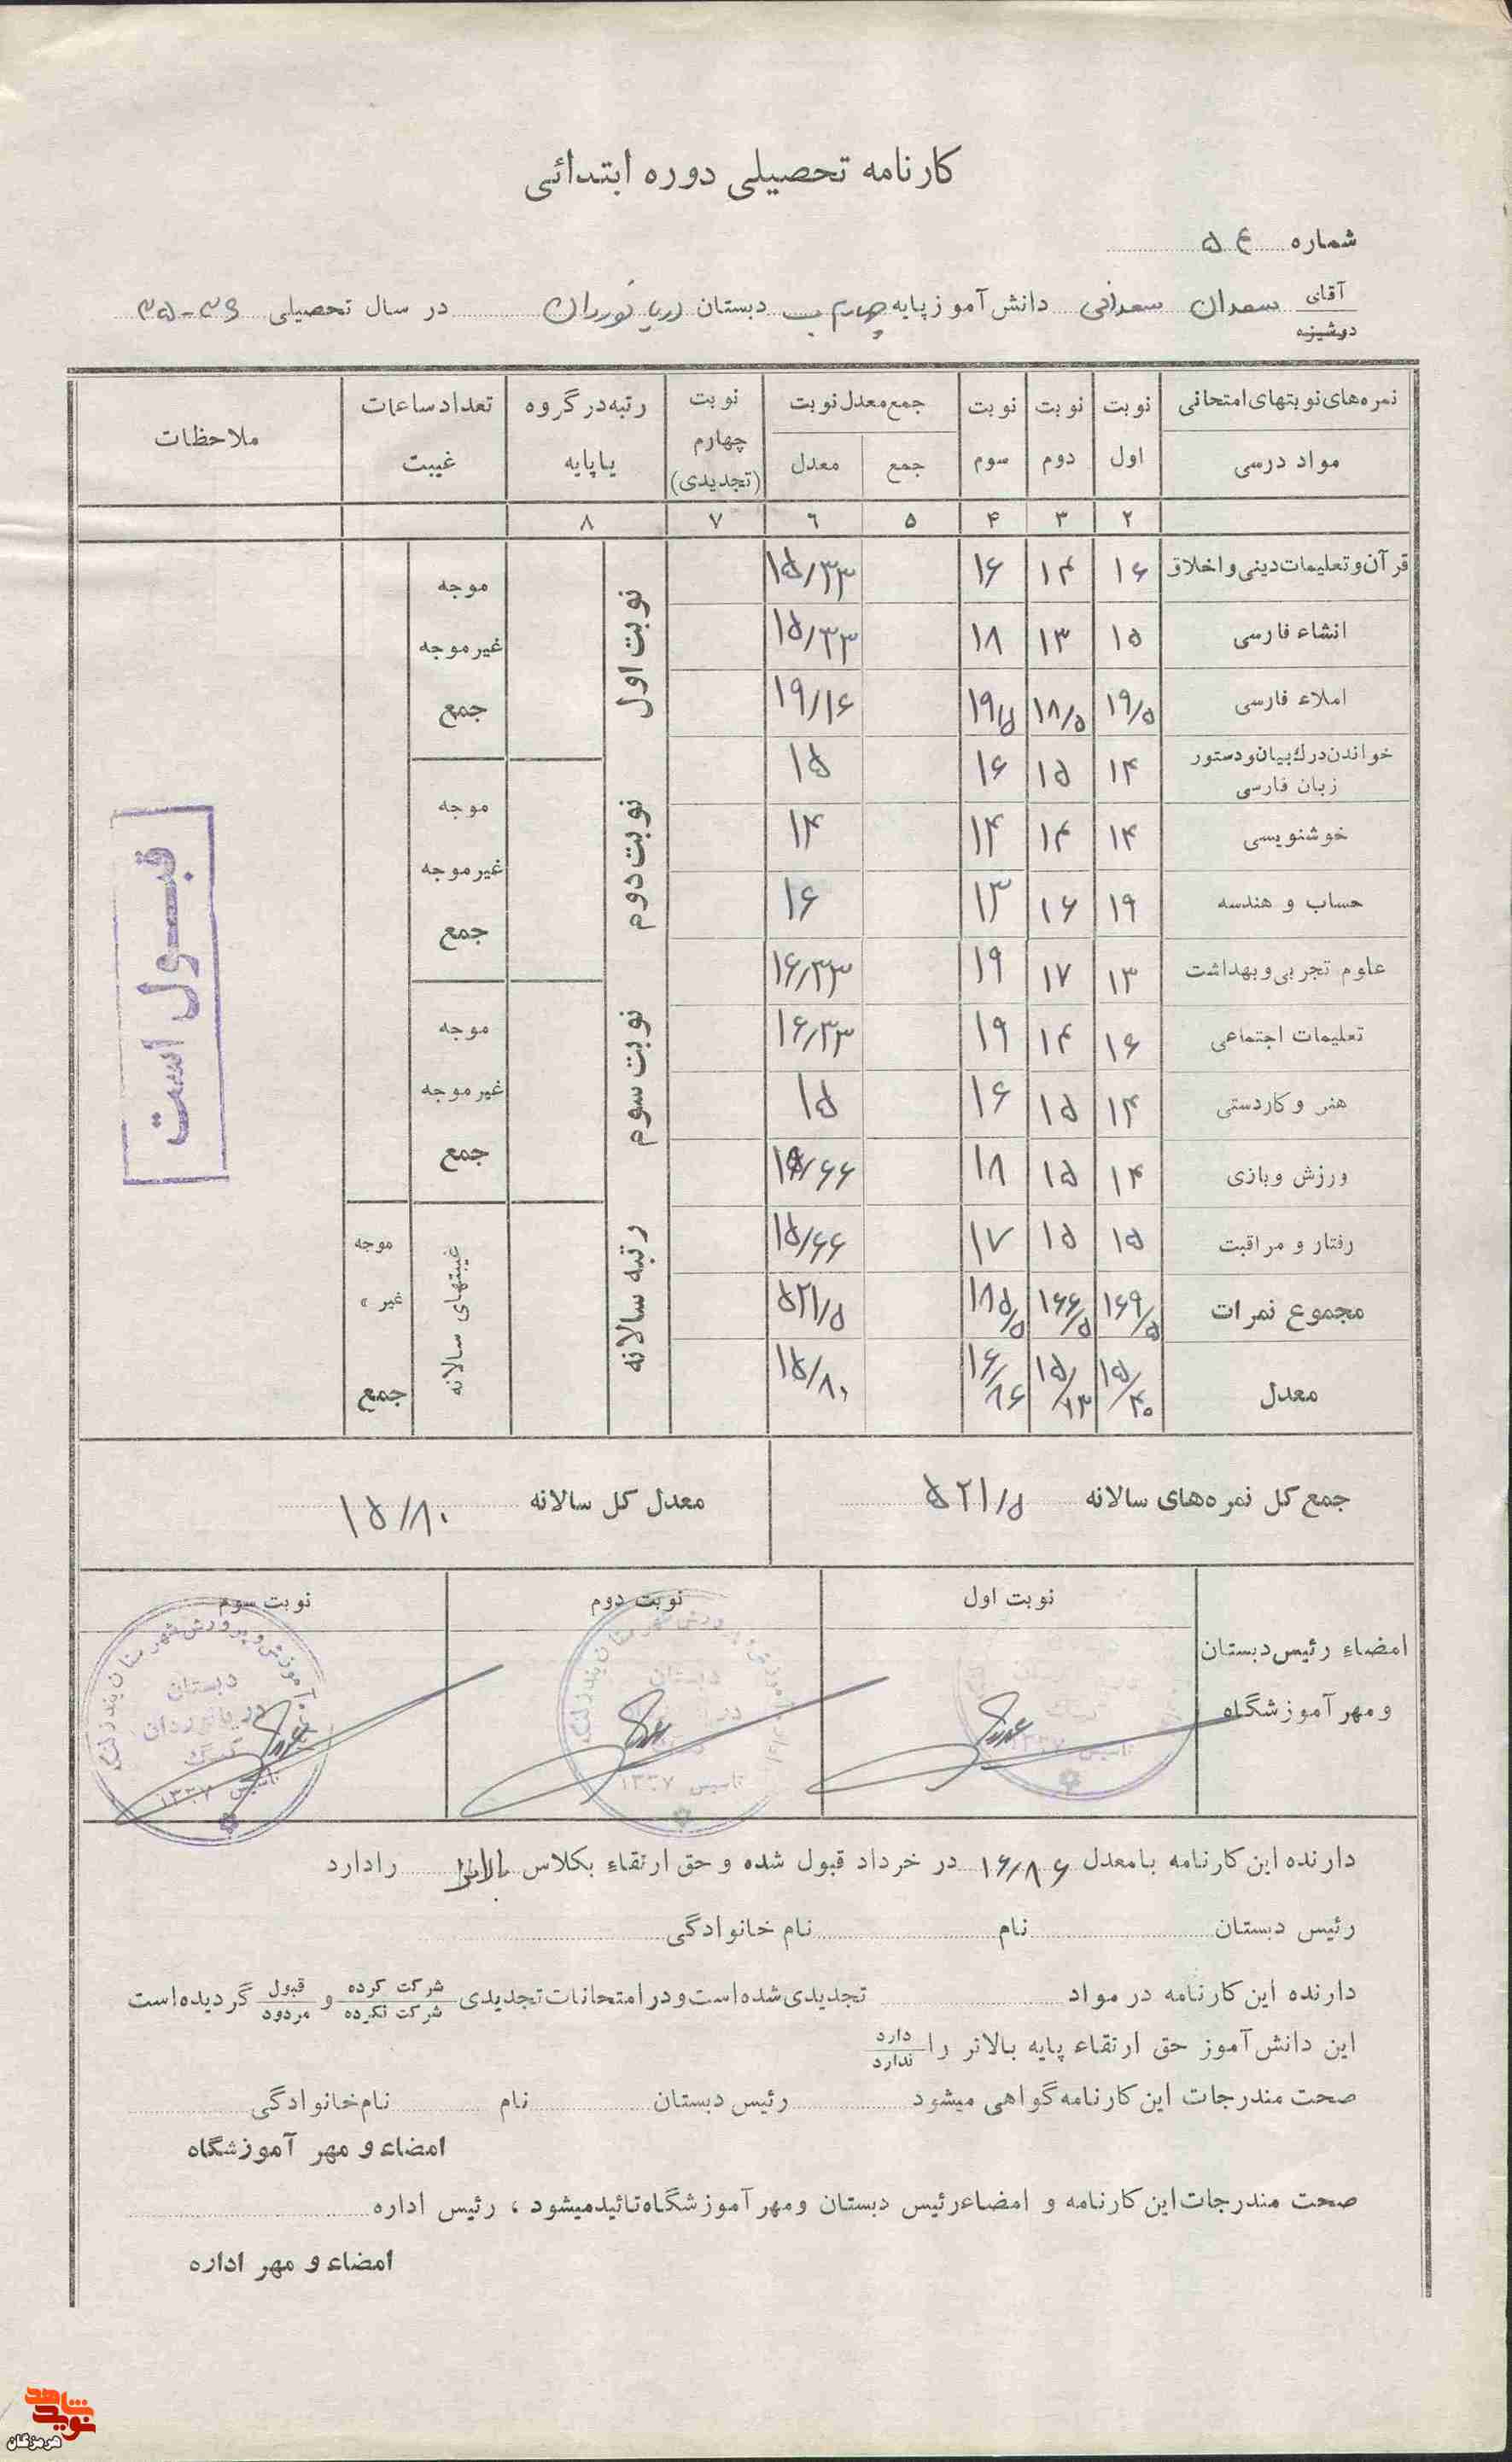 کارنامه تحصیلی دوره ابتدائی
شماره ۵۴
آقای
دوشیزه
سعدان سعدانی دانش آموز پایه چهارم ب دبستان دریا نوردان در سال تحصیلی ۳۶-۳۵
نمره‌های نوبتهای امتحانی نوبت نوبت نوبت جمع معدل نوبت نوبت رتبه در گروه تعداد ساعات ملاحظات
مواد درسی اول دوم سوم جمع معدل چهارم (تجدیدی) یا پایه غیبت
۲ ۳ ۴ ۵ ۶ ۷ ۸
قرآن و تعلیمات دینی و اخلاق ۱۶ ۱۴ ۱۶ ۱۵/۳۳
انشاء فارسی ۱۵ ۱۳ ۱۸ ۱۵/۳۳
املاء فارسی ۱۹/۵ ۱۸/۵ ۱۹/۵ ۱۹/۱۶
خواندن درك بیان و دستور زبان فارسی ۱۴ ۱۵ ۱۶ ۱۵
خوشنویسی ۱۴ ۱۴ ۱۴ ۱۴
حساب و هندسه ۱۹ ۱۶ ۱۳ ۱۶
علوم تجربی و بهداشت ۱۳ ۱۷ ۱۹ ۱۶/۳۳
تعلیمات اجتماعی ۱۶ ۱۴ ۱۹ ۱۶/۳۳
هنر و کاردستی ۱۴ ۱۵ ۱۶ ۱۵
ورزش و بازی ۱۴ ۱۵ ۱۸ ۱۵/۶۶
رفتار و مراقبت ۱۵ ۱۵ ۱۷ ۱۵/۶۶
مجموع نمرات ۱۶۹/۵ ۱۶۶/۵ ۱۸۵/۵ ۵۲۱/۵
معدل ۱۵/۴۰ ۱۵/۱۳ ۱۶/۸۶ ۱۵/۸۰
نوبت اول
نوبت دوم
نوبت سوم
رتبه سالانه
موجه
غیر موجه
جمع
موجه
غیر موجه
جمع
موجه
غیر موجه
جمع
غیبتهای سالانه
موجه
غیر »
جمع
قبول است
جمع کل نمره‌های سالانه ۵۲۱/۵ معدل کل سالانه ۱۵/۸۰
امضاء رئیس دبستان
و مهر آموزشگاه
نوبت اول نوبت دوم نوبت سوم
تاسیس ۱۳۳۷
دبستان
تاسیس ۱۳۳۷
آموزش و پرورش شهرستان بندرلنگه
دبستان
دریانوردان
کنگ
تاسیس ۱۳۳۷
دارنده این کارنامه با معدل ۱۶/۸۶ در خرداد قبول شده و حق ارتقاء بکلاس بالاتر را دارد
رئیس دبستان نام نام خانوادگی
دارنده این کارنامه در مواد تجدیدی شده است و در امتحانات تجدیدی شرکت کرده / شرکت نکرده و قبول / مردود گردیده است
این دانش آموز حق ارتقاء پایه بالاتر را دارد / ندارد
صحت مندرجات این کارنامه گواهی میشود رئیس دبستان نام نام خانوادگی
امضاء و مهر آموزشگاه
صحت مندرجات این کارنامه و امضاء رئیس دبستان و مهر آموزشگاه تائید میشود ، رئیس اداره
امضاء و مهر اداره
نوید شاهد
هرمزگان